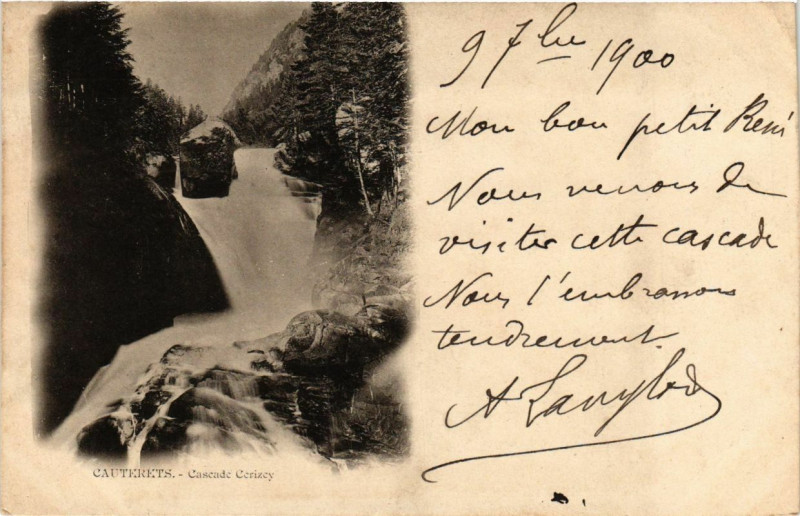 9 7bre 1900
Mon bon petit René
Nous venons de
visiter cette cascade
Nous t'embrassons
tendrement.
A Langlois
CAUTERETS. - Cascade Cerizey